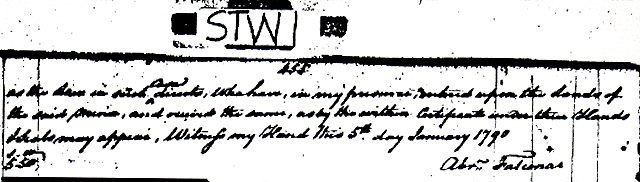 STW
458
as the Law in such Case directs, who have, in my presence, entered upon the Lands of
the said and the same, as by the within Certificate under their Hands
& Seals may appear, Witness my Hand this 5th day January 1790
Abrm